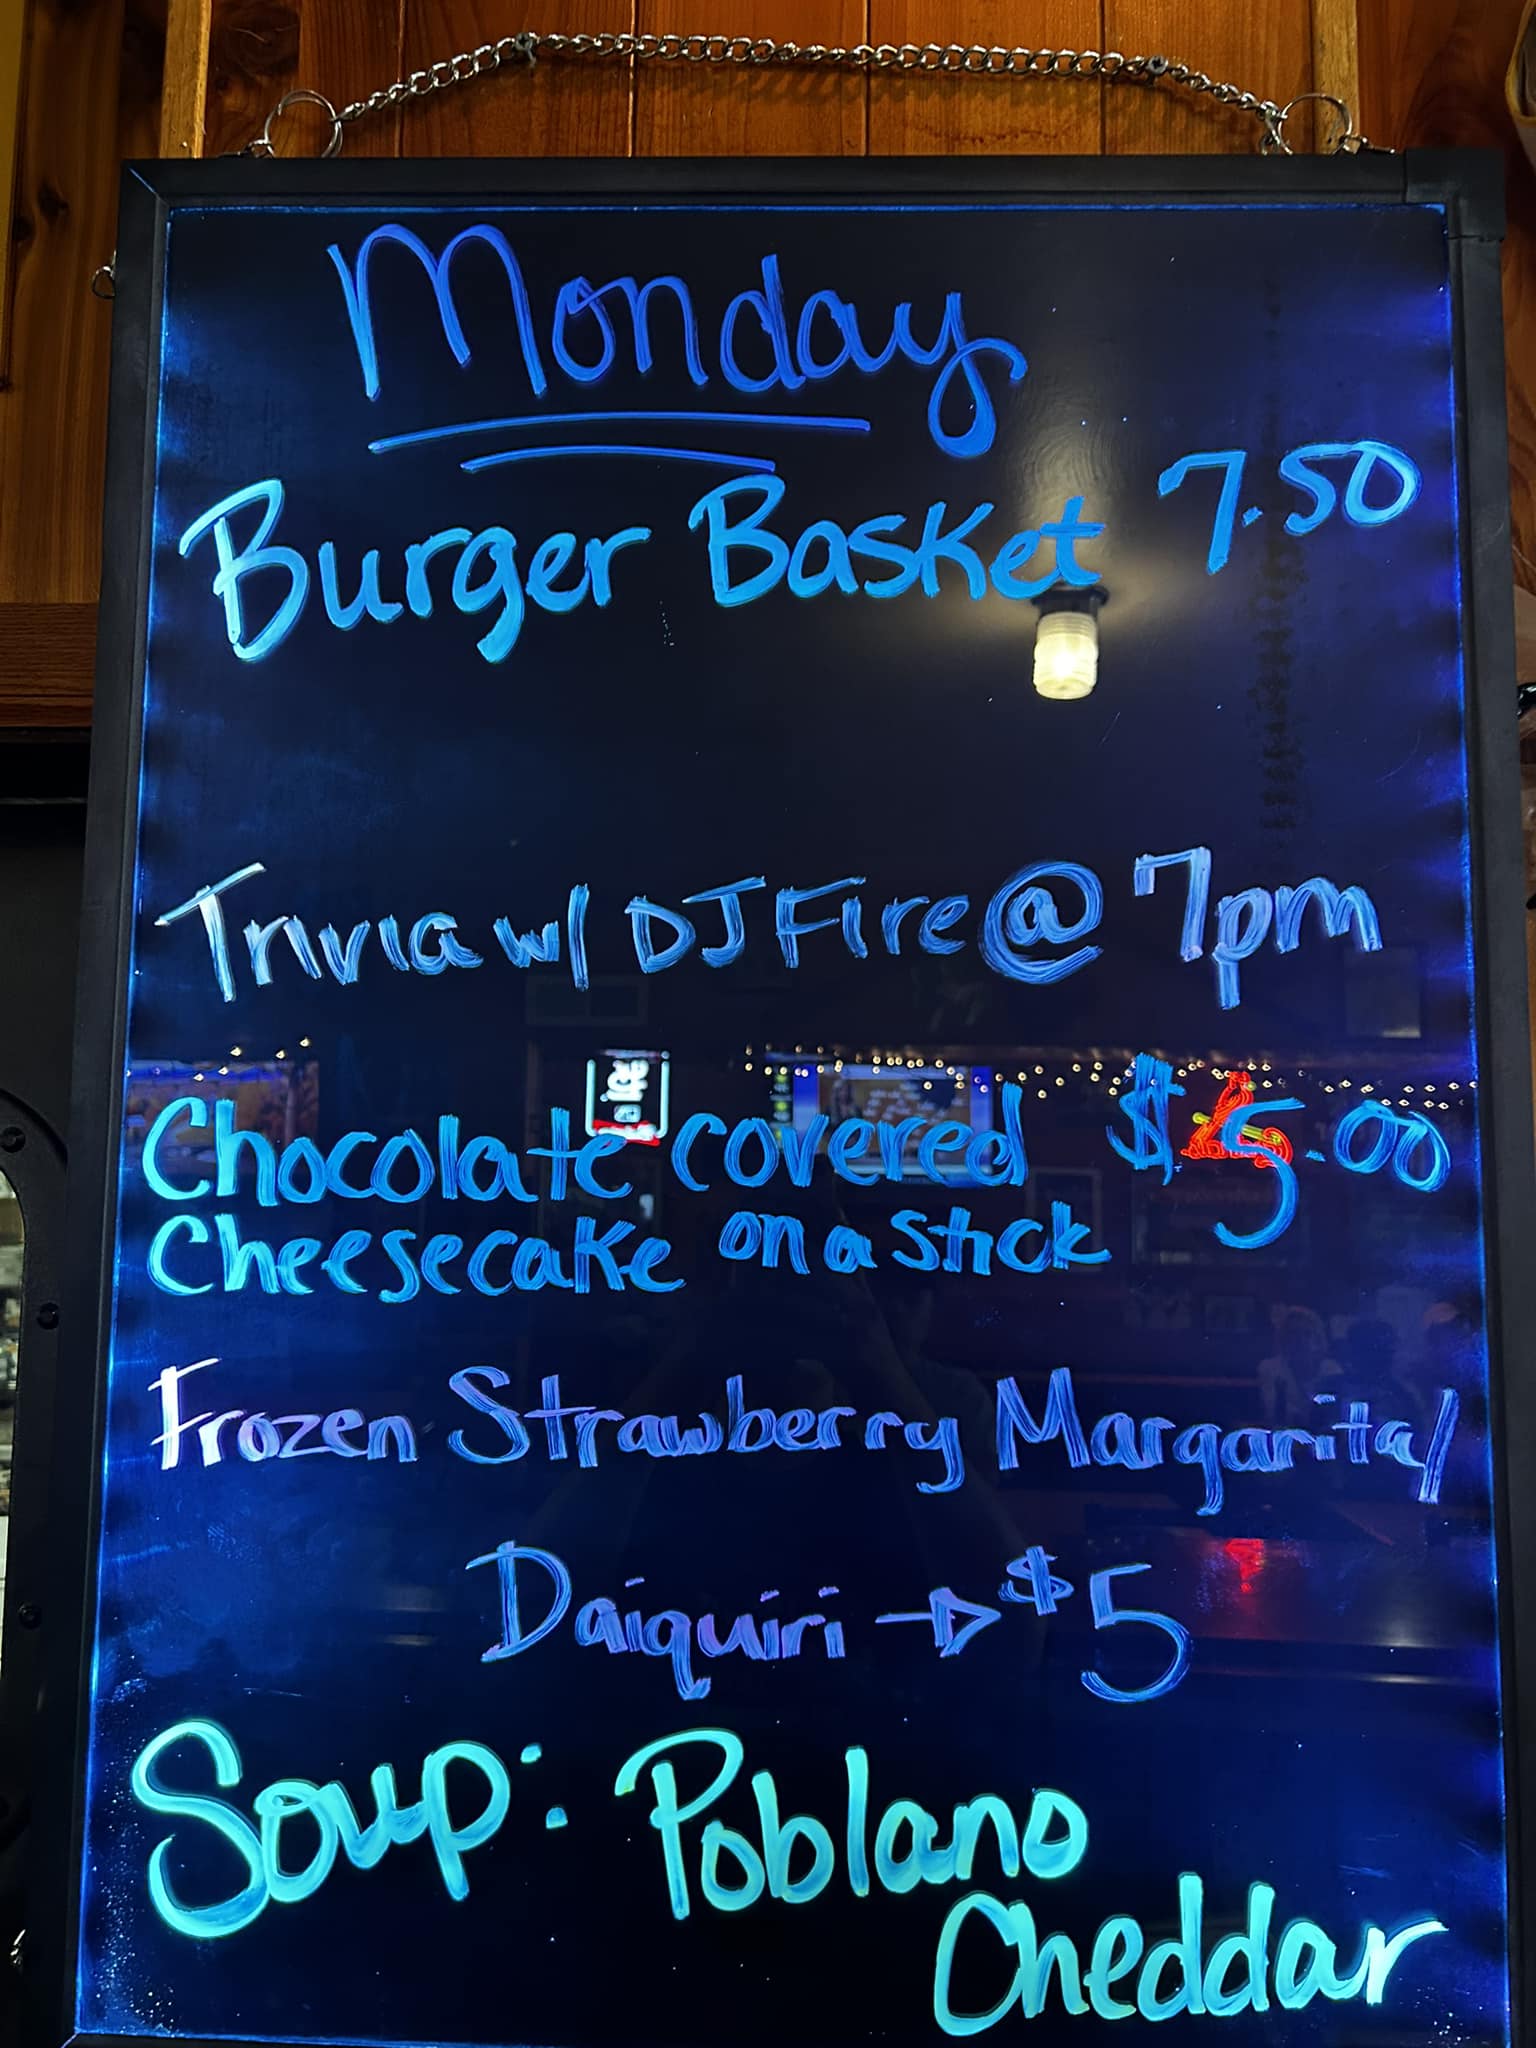 Monday
Burger Basket 7.50
Trivia w/ DJ Fire @ 7pm
Chocolate covered $5.00
Cheesecake on a stick
Frozen Strawberry Margarita/
Daiquiri → $5
Soup: Poblano
Cheddar